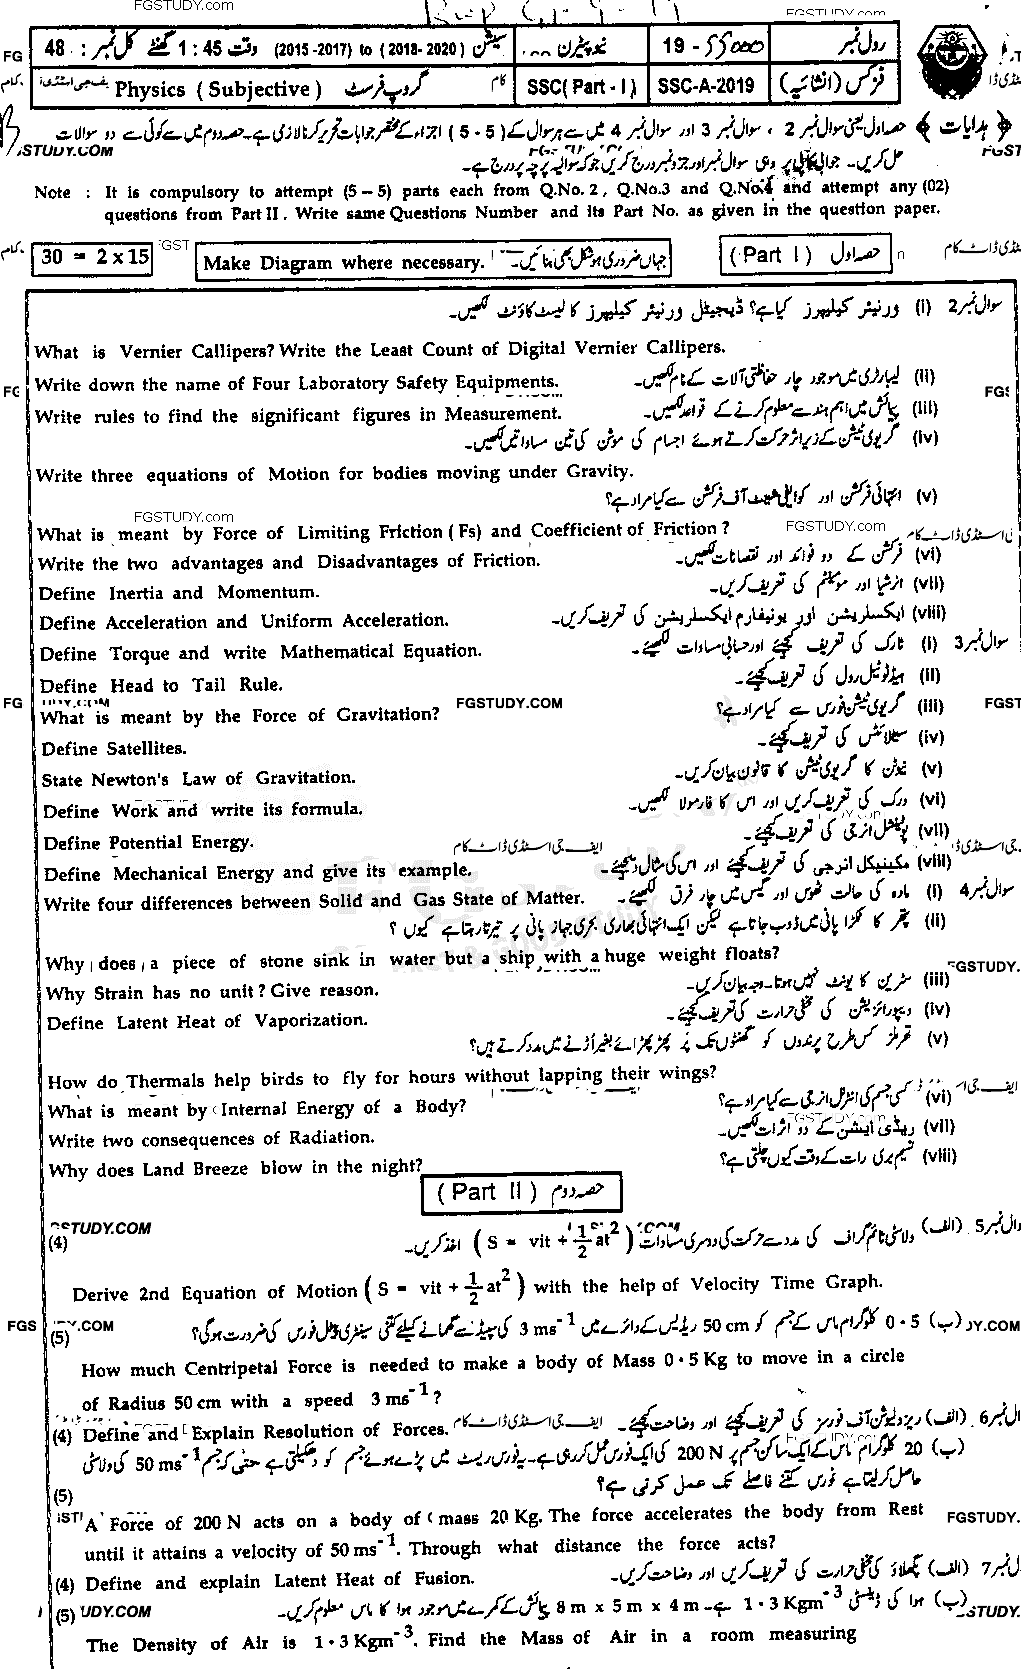 FGSTUDY.COM
FGSTUDY.com
رول نمبر 19 - 55000 نیو پیٹرن سیشن (2015 -2017) to (2018- 2020) وقت 1 : 45 گھنٹے کل نمبر : 48
فزکس (انشائیہ) SSC-A-2019 SSC(Part - I) گروپ فرسٹ Physics ( Subjective )
﴿ ہدایات ﴾ حصہ اول یعنی سوال نمبر 2 ، سوال نمبر 3 اور سوال نمبر 4 میں سے ہر سوال کے (5 - 5) اجزاء کے مختصر جوابات تحریر کرنا لازمی ہے۔ حصہ دوم میں سے کوئی سے دو سوالات
حل کریں۔ جوابی کاپی پر وہی سوال نمبر اور جزو نمبر درج کریں جو کہ سوالیہ پرچہ پر درج ہے۔
Note : It is compulsory to attempt (5 – 5) parts each from Q.No. 2 , Q.No.3 and Q.No.4 and attempt any (02)
questions from Part II . Write same Questions Number and its Part No. as given in the question paper.
حصہ اول ( Part I ) جہاں ضروری ہو شکل بھی بنائیں۔ Make Diagram where necessary. 30 = 2 x 15
سوال نمبر 2 (i) ورنیئر کیلیپرز کیا ہے؟ ڈیجیٹل ورنیئر کیلیپرز کا لیسٹ کاؤنٹ لکھیں۔
What is Vernier Callipers? Write the Least Count of Digital Vernier Callipers.
Write down the name of Four Laboratory Safety Equipments. (ii) لیبارٹری میں موجود چار حفاظتی آلات کے نام لکھیں۔
Write rules to find the significant figures in Measurement. (iii) پیمائش میں اہم ہندسے معلوم کرنے کے قواعد لکھیں۔
(iv) گریوی ٹیشن کے زیر اثر حرکت کرتے ہوئے اجسام کی موشن کی تین مساواتیں لکھیں۔
Write three equations of Motion for bodies moving under Gravity.
(v) انتہائی فرکشن اور کوایفی شینٹ آف فرکشن سے کیا مراد ہے؟
FGSTUDY.com FGSTUDY.com
What is meant by Force of Limiting Friction ( Fs) and Coefficient of Friction ?
Write the two advantages and Disadvantages of Friction. (vi) فرکشن کے دو فوائد اور نقصانات لکھیں۔
Define Inertia and Momentum. (vii) انرشیا اور مومینٹم کی تعریف کریں۔
Define Acceleration and Uniform Acceleration. (viii) ایکسلریشن اور یونیفارم ایکسلریشن کی تعریف کریں۔
Define Torque and write Mathematical Equation. سوال نمبر 3 (i) ٹارک کی تعریف کیجئے اور حسابی مساوات لکھیئے۔
Define Head to Tail Rule. (ii) ہیڈ ٹو ٹیل رول کی تعریف کیجئے۔
FGSTUDY.COM
What is meant by the Force of Gravitation? (iii) گریوی ٹیشن فورس سے کیا مراد ہے؟
Define Satellites. (iv) سیٹلائٹس کی تعریف کیجئے۔
State Newton's Law of Gravitation. (v) نیوٹن کا گریوی ٹیشن کا قانون بیان کریں۔
Define Work and write its formula. (vi) ورک کی تعریف کریں اور اس کا فارمولا لکھیں۔
Define Potential Energy. (vii) پوٹینشل انرجی کی تعریف کیجئے۔
ایف جی اسٹڈی ڈاٹ کام
Define Mechanical Energy and give its example. (viii) مکینیکل انرجی کی تعریف کیجئے اور اس کی مثال دیجئے۔
Write four differences between Solid and Gas State of Matter. سوال نمبر 4 (i) مادہ کی حالت ٹھوس اور گیس میں چار فرق لکھیئے۔
(ii) پتھر کا ٹکڑا پانی میں ڈوب جاتا ہے لیکن ایک انتہائی بھاری بحری جہاز پانی پر تیرتا رہتا ہے کیوں ؟
Why does a piece of stone sink in water but a ship with a huge weight floats?
Why Strain has no unit? Give reason. (iii) سٹرین کا یونٹ نہیں ہوتا۔ وجہ بیان کریں۔
Define Latent Heat of Vaporization. (iv) ویپورائزیشن کی مخفی حرارت کی تعریف کیجئے۔
(v) تھرملز کس طرح پرندوں کو گھنٹوں تک پر پھڑپھڑائے بغیر اڑنے میں مدد کرتے ہیں؟
How do Thermals help birds to fly for hours without lapping their wings?
What is meant by Internal Energy of a Body? (vi) کسی جسم کی انٹرنل انرجی سے کیا مراد ہے؟
Write two consequences of Radiation. (vii) ریڈی ایشن کے دو اثرات لکھیں۔
Why does Land Breeze blow in the night? (viii) نسیم بری رات کے وقت کیوں چلتی ہے؟
حصہ دوم ( Part II )
(الف) ولاسٹی ٹائم گراف کی مدد سے حرکت کی دوسری مساوات ( S = vit + 1/2 at² ) اخذ کریں۔ (4)
Derive 2nd Equation of Motion ( S = vit + 1/2 at² ) with the help of Velocity Time Graph.
(ب) 0.5 کلوگرام ماس کے جسم کو 50 cm ریڈیس کے دائرے میں 3 ms⁻¹ کی سپیڈ سے گھمانے کیلئے کتنی سینٹری پیٹل فورس کی ضرورت ہوگی؟ (5)
How much Centripetal Force is needed to make a body of Mass 0.5 Kg to move in a circle
of Radius 50 cm with a speed 3 ms⁻¹ ?
(4) Define and Explain Resolution of Forces. ایف جی اسٹڈی ڈاٹ کام (الف) ریزولیوشن آف فورسز کی تعریف کیجئے اور وضاحت کیجئے۔
(ب) 20 کلوگرام ماس کے ایک ساکن جسم پر 200 N کی ایک فورس عمل کر رہی ہے۔ یہ فورس ریسٹ میں پڑے ہوئے جسم کو دھکیلتی ہے حتی کہ جسم 50 ms⁻¹ کی ولاسٹی
حاصل کر لیتا ہے فورس کتنے فاصلے تک عمل کرتی ہے؟ (5)
A Force of 200 N acts on a body of mass 20 Kg. The force accelerates the body from Rest
until it attains a velocity of 50 ms⁻¹. Through what distance the force acts?
(4) Define and explain Latent Heat of Fusion. (الف) پگھلاؤ کی مخفی حرارت کی تعریف کریں اور وضاحت کریں۔
(5) (ب) ہوا کی ڈینسٹی 1.3 Kgm⁻³ ہے۔ 8 m x 5 m x 4 m پیمائش کے کمرے میں موجود ہوا کا ماس معلوم کریں۔
The Density of Air is 1.3 Kgm⁻³. Find the Mass of Air in a room measuring